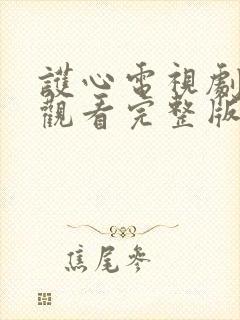 護心電視劇
觀看完整版
焦尾參